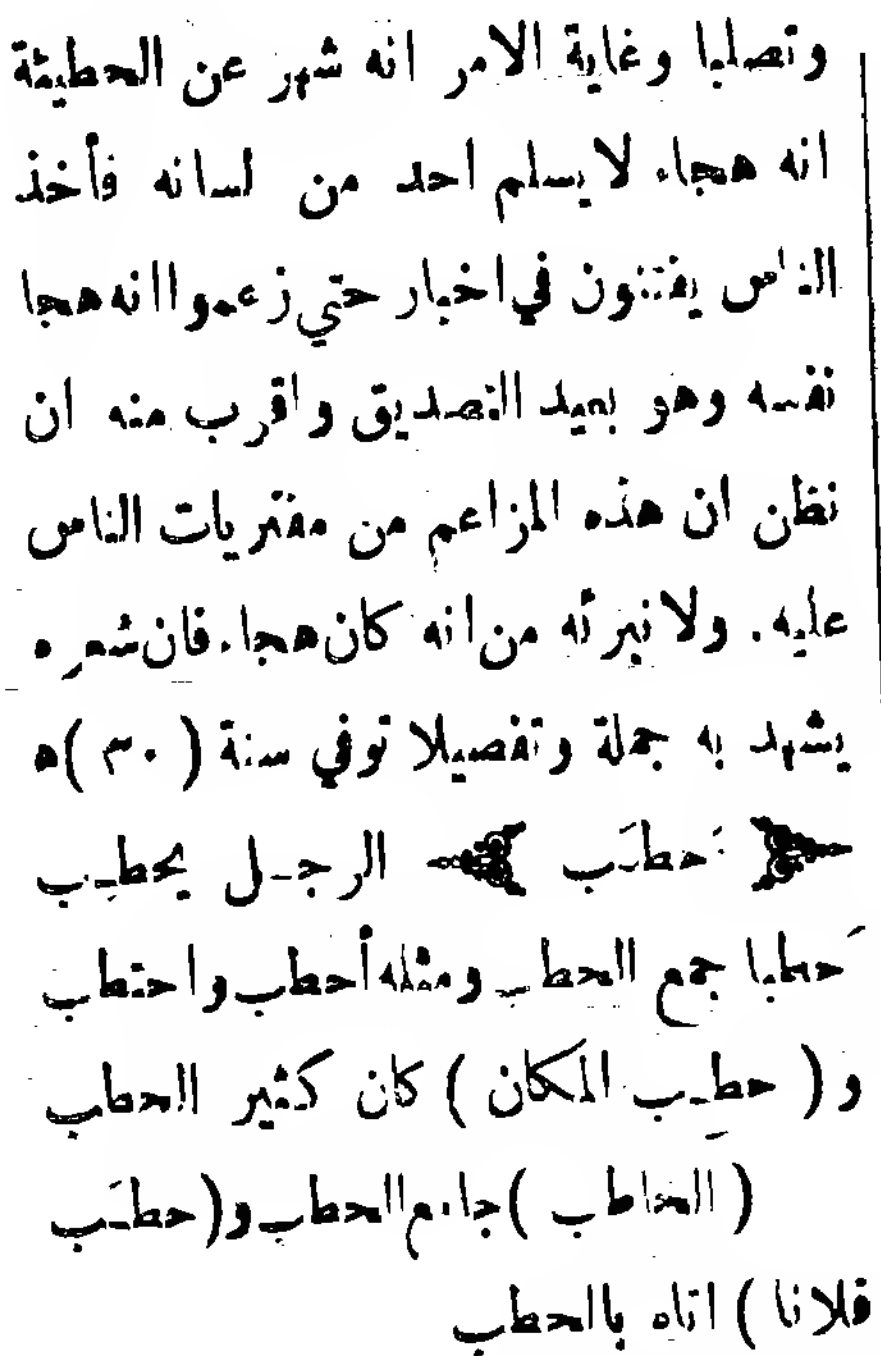 وتصلبا وغاية الامر انه شهر عن الحطيئة
انه هجاء لايسلم احد من لسانه فأخذ
الناس يفتنون في اخبار حتي زعموا انه هجا
نفسه وهو بعيد التصديق واقرب منه ان
نظن ان هذه المزاعم من مفتريات الناس
عليه . ولا نبرئه من انه كان هجاء . فان شعره
يشهد به جملة وتفصيلا توفي سنة ( ٣٠ )ه
﴿ حطَب ﴾ الرجل يحطِب
حَطبا جمع الحطب ومثله أحطب واحتطب
و ( حطِب المكان ) كان كثير الحطب
( الحاطب ) جامع الحطب و ( حطَب
فلانا ) اتاه بالحطب